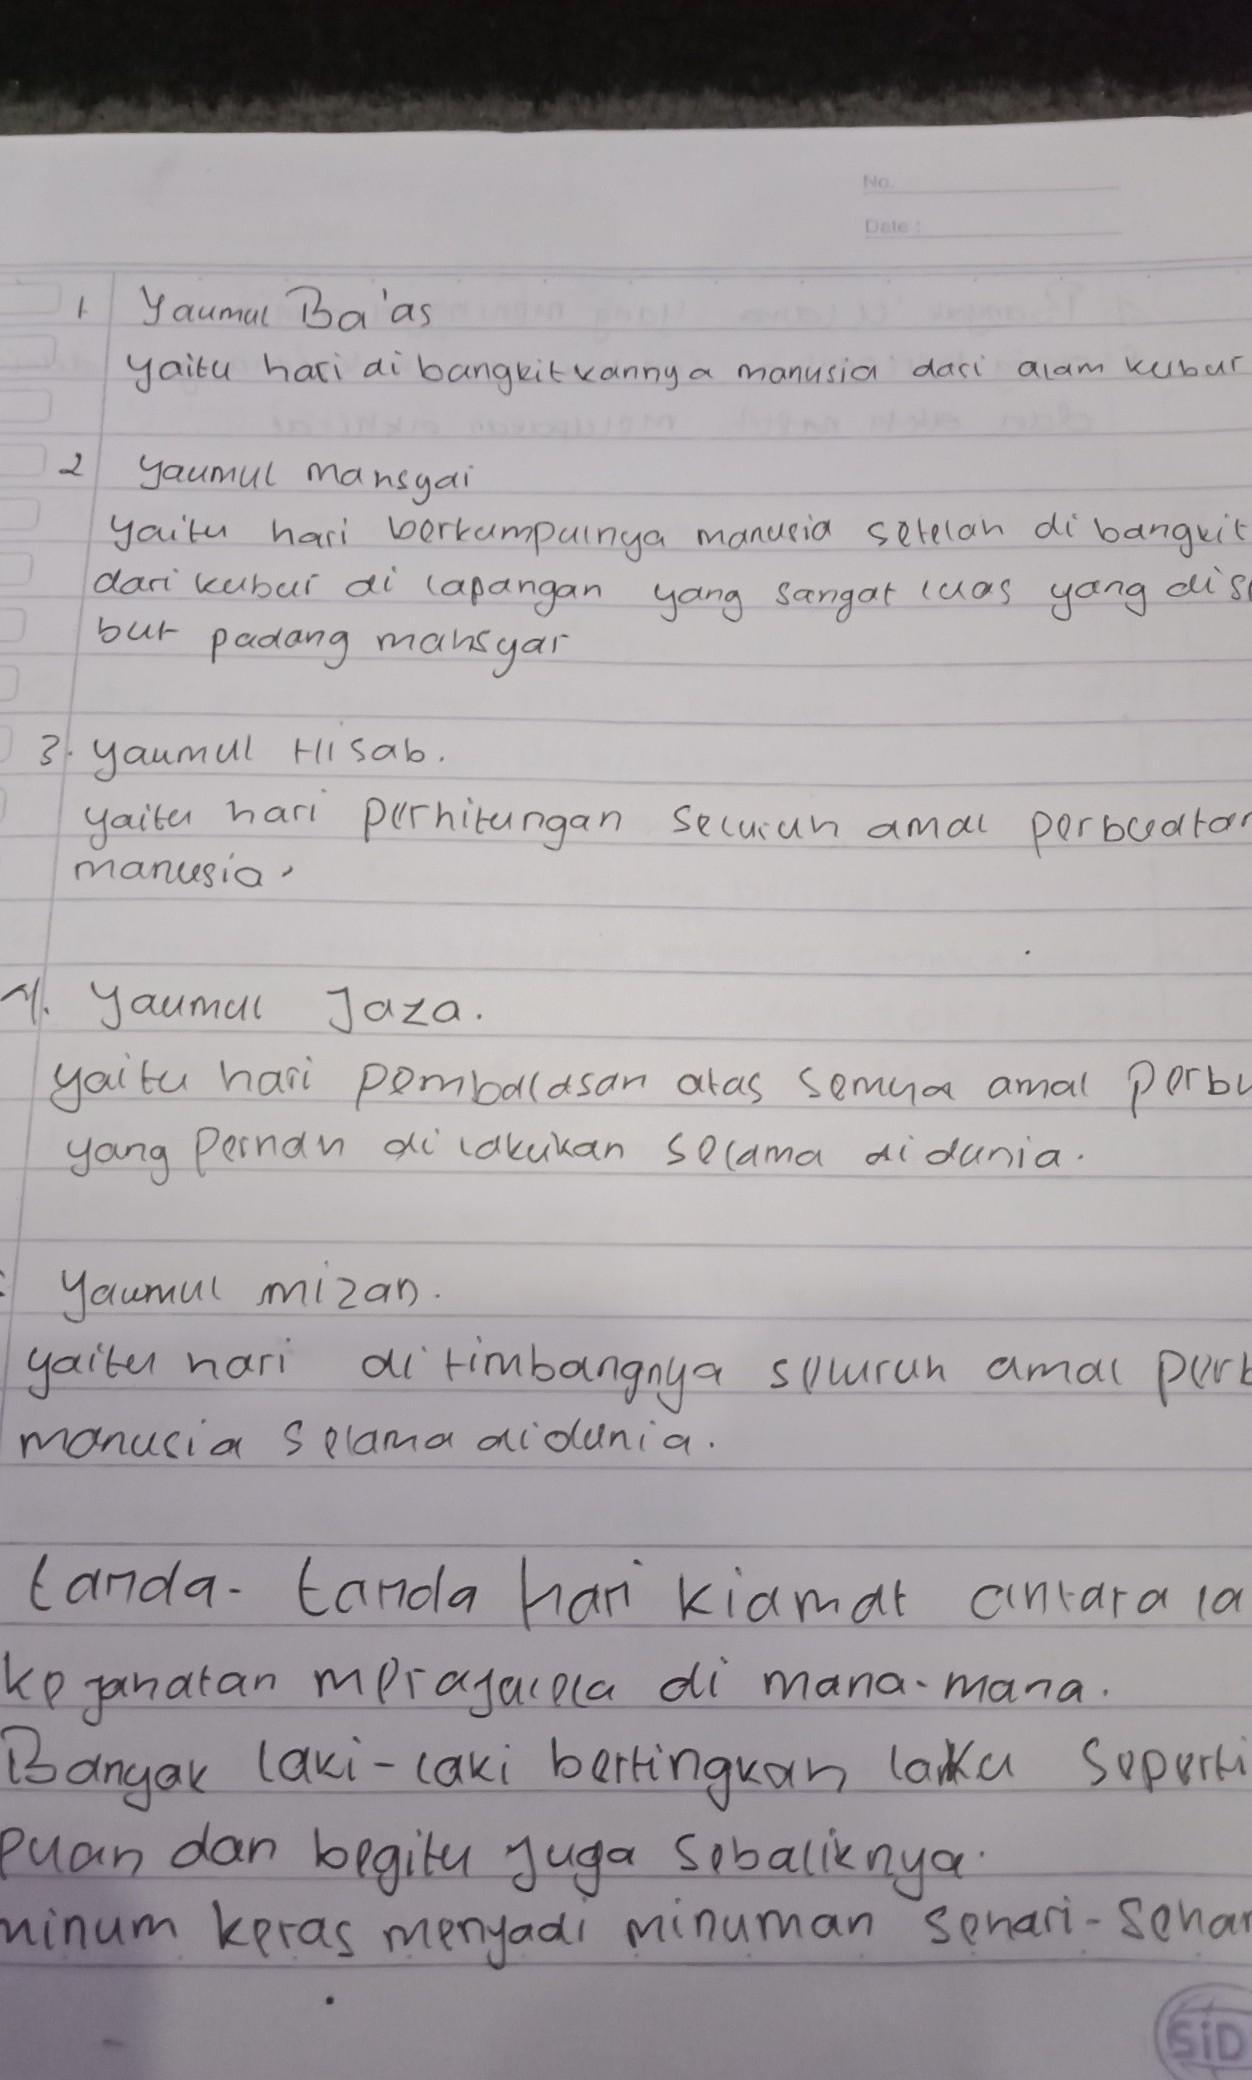 No.
Date :
1 Yaumul Ba'as
yaitu hari di bangkitkannya manusia dari alam kubur
2 yaumul mansyai
yaitu hari berkumpulnya manusia setelah di bangkit
dari kubur di lapangan yang sangat luas yang dis
but padang mahsyar
3. yaumul Hisab.
yaitu hari perhitungan seluruh amal perbuatan
manusia.
4. Yaumul Jaza.
yaitu hari pembalasan atas semua amal perbu
yang pernah di lakukan selama didunia.
Yaumul mizan.
yaitu hari di timbangnya seluruh amal perb
manusia selama didunia.
tanda-tanda hari kiamat antara la
kejahatan merajalela di mana-mana.
Banyak laki-laki bertingkah laku seperti
puan dan begitu juga sebaliknya.
minum keras menjadi minuman sehari-sehar
SiD